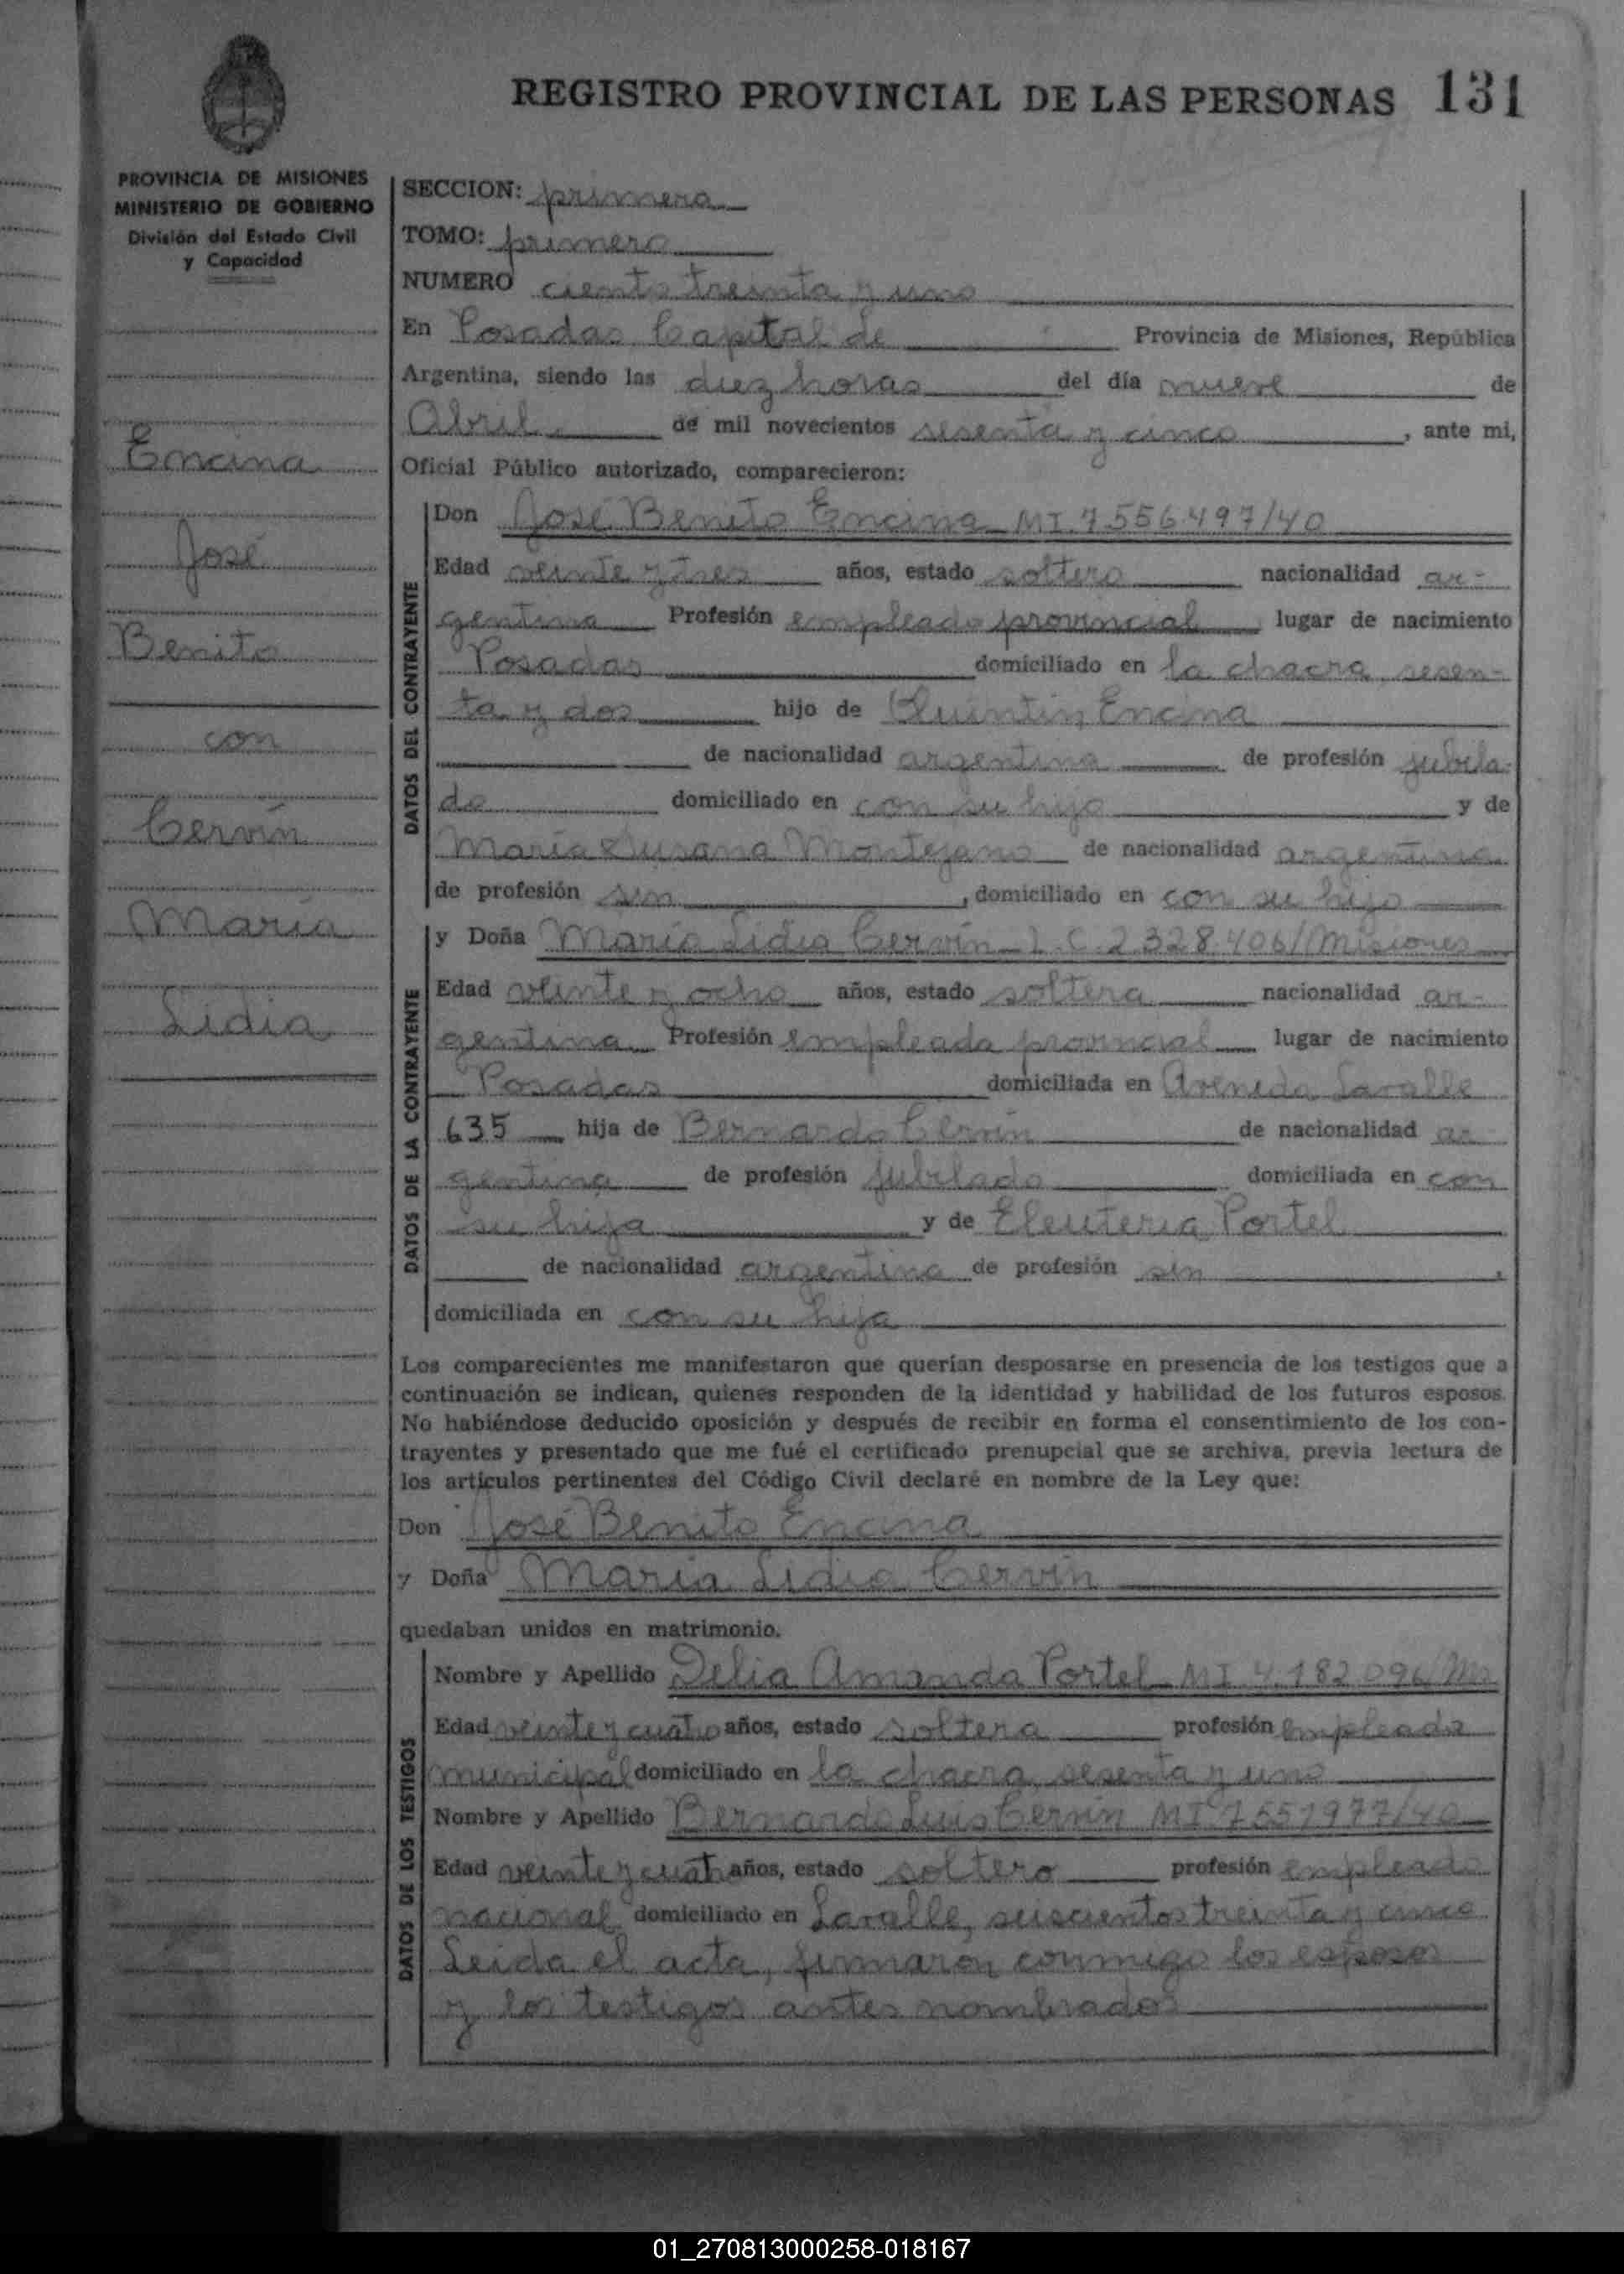 REGISTRO PROVINCIAL DE LAS PERSONAS 131
PROVINCIA DE MISIONES
MINISTERIO DE GOBIERNO
División del Estado Civil
y Capacidad
Encina
José
Benito
con
Cervín
María
Lidia
SECCION: primera
TOMO: primero
NUMERO ciento treinta y uno
En Posadas Capital de Provincia de Misiones, República
Argentina, siendo las diez horas del día nueve de
Abril de mil novecientos sesenta y cinco, ante mi,
Oficial Público autorizado, comparecieron:
DATOS DEL CONTRAYENTE
Don José Benito Encina MI.7.556.497/40
Edad veinte y tres años, estado soltero nacionalidad ar-
gentina Profesión empleado provincial lugar de nacimiento
Posadas domiciliado en la chacra sesen-
ta y dos hijo de Quintin Encina
de nacionalidad argentina de profesión jubila-
do domiciliado en con su hijo y de
María Susana Montejano de nacionalidad argentina
de profesión sin, domiciliado en con su hijo
DATOS DE LA CONTRAYENTE
y Doña María Lidia Cervín L.C.2.328.406/Misiones
Edad veinte y ocho años, estado soltera nacionalidad ar-
gentina Profesión empleada provincial lugar de nacimiento
Posadas domiciliada en Avenida Lavalle
635 hija de Bernardo Cervín de nacionalidad ar
gentina de profesión jubilado domiciliada en con
su hija y de Eleuteria Portel
de nacionalidad argentina de profesión sin,
domiciliada en con su hija
Los comparecientes me manifestaron que querían desposarse en presencia de los testigos que a
continuación se indican, quienes responden de la identidad y habilidad de los futuros esposos.
No habiéndose deducido oposición y después de recibir en forma el consentimiento de los con-
trayentes y presentado que me fué el certificado prenupcial que se archiva, previa lectura de
los artículos pertinentes del Código Civil declaré en nombre de la Ley que:
Don José Benito Encina
y Doña María Lidia Cervín
quedaban unidos en matrimonio.
DATOS DE LOS TESTIGOS
Nombre y Apellido Delia Amanda Portel MI 4.182.096/Ms
Edad veinte y cuatro años, estado soltera profesión empleada
municipal domiciliado en la chacra sesenta y uno
Nombre y Apellido Bernardo Luis Cervín MI 7.551977/40
Edad veinte y cuatro años, estado soltero profesión empleado
nacional domiciliado en Lavalle, seiscientos treinta y cinco
Leida el acta, firmaron conmigo los esposos
y los testigos antes nombrados
01_270813000258-018167